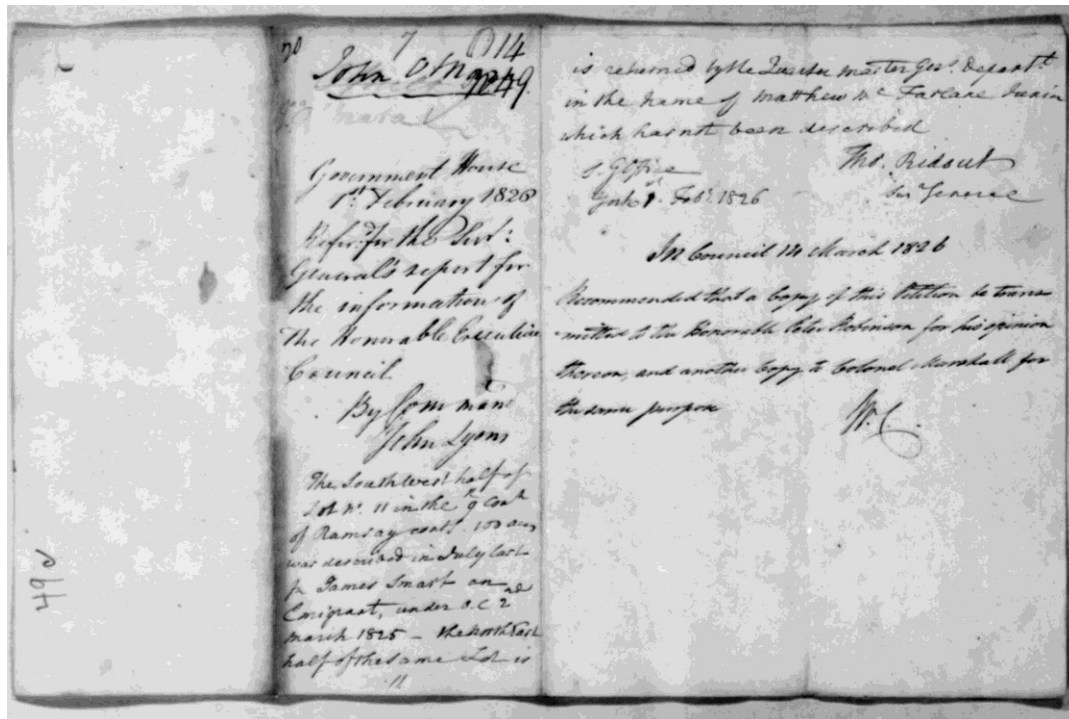 no 7 14
John O'Mara
49
mara
Government House
1st February 1826
Referr'd for the Surv:
General's report for
the information of
the Honorable Executive
Council.
By Command
John Lyons
The South West half of
Lot No. 11 in the 9th Con
of Ramsay cont.g 100 acres
was described in July last
for James Smart an
Emigrant, under O.C. 2nd
March 1825 — the North East
half of the same Lot is
is returned by the Quarter master Genl. Departt.
in the name of Matthew Mc Farlane
which has not been described
S. G. Office
York 1st Feby. 1826
Tho. Ridout
Sur General
In Council 14 March 1826
Recommended that a Copy of this Petition be trans
-mitted to the Honorable Peter Robinson for his opinion
thereon, and another Copy to Colonel Marshall for
the same purpose
W. C.
49c